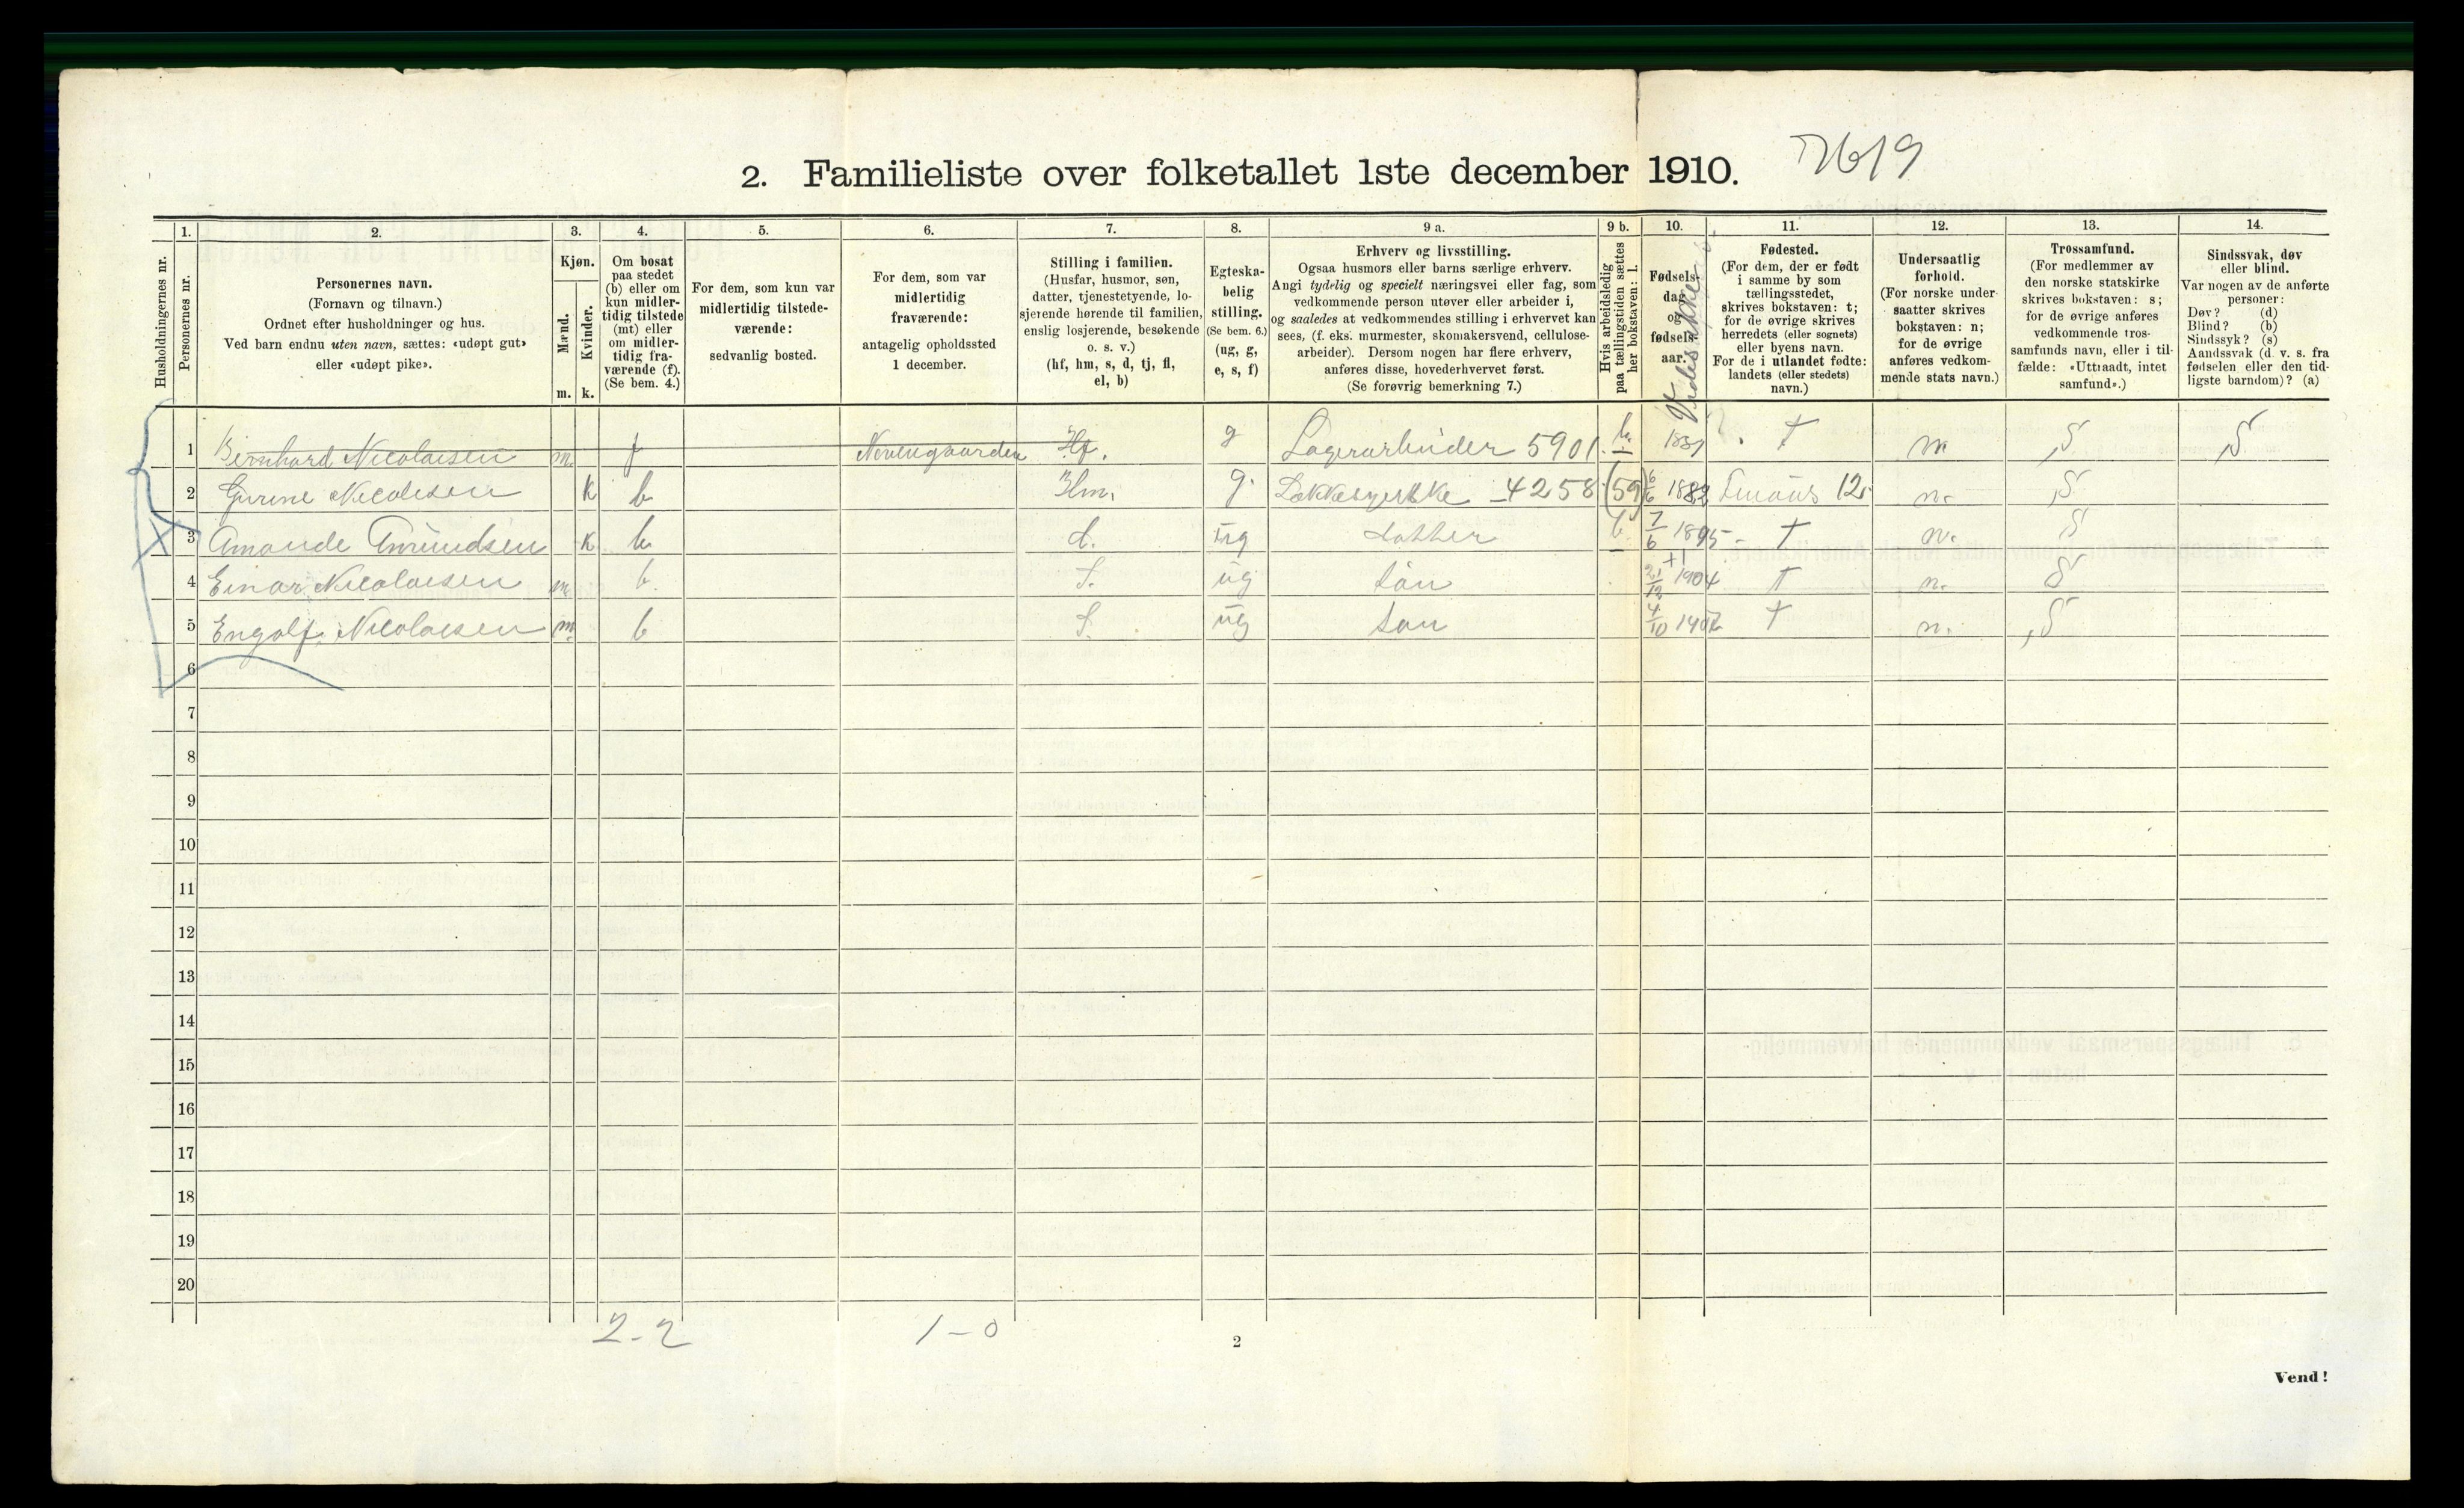 2. Familieliste over folketallet 1ste december 1910. 7619
Husholdningernes nr.
1.
Personernes nr.
2.
Personernes navn.
(Fornavn og tilnavn.)
Ordnet efter husholdninger og hus.
Ved barn endnu uten navn, sættes: «udøpt gut»
eller «udøpt pike».
3.
Kjøn.
Mænd.
Kvinder.
m. k.
4.
Om bosat
paa stedet
(b) eller om
kun midler-
tidig tilstede
(mt) eller
om midler-
tidig fra-
værende (f).
(Se bem. 4.)
5.
For dem, som kun var
midlertidig tilstede-
værende:
sedvanlig bosted.
6.
For dem, som var
midlertidig
fraværende:
antagelig opholdssted
1 december.
7.
Stilling i familien.
(Husfar, husmor, søn,
datter, tjenestetyende, lo-
sjerende hørende til familien,
enslig losjerende, besøkende
o. s. v.)
(hf, hm, s, d, tj, fl,
el, b)
8.
Egteska-
belig
stilling.
(Se bem. 6.)
(ug, g,
e, s, f)
9 a.
Erhverv og livsstilling.
Ogsaa husmors eller barns særlige erhverv.
Angi tydelig og specielt næringsvei eller fag, som
vedkommende person utøver eller arbeider i,
og saaledes at vedkommendes stilling i erhvervet kan
sees, (f. eks. murmester, skomakersvend, cellulose-
arbeider). Dersom nogen har flere erhverv,
anføres disse, hovederhvervet først.
(Se forøvrig bemerkning 7.)
9 b.
Hvis arbeidsledig
paa tællingstiden sættes
her bokstaven: l.
10.
Fødsels-
dag
og
fødsels-
aar.
11.
Fødested.
(For dem, der er født
i samme by som
tællingsstedet,
skrives bokstaven: t;
for de øvrige skrives
herredets (eller sognets)
eller byens navn.
For de i utlandet fødte:
landets (eller stedets)
navn.)
12.
Undersaatlig
forhold.
(For norske under-
saatter skrives
bokstaven: n;
for de øvrige
anføres vedkom-
mende stats navn.)
13.
Trossamfund.
(For medlemmer av
den norske statskirke
skrives bokstaven: s;
for de øvrige anføres
vedkommende tros-
samfunds navn, eller i til-
fælde: «Uttraadt, intet
samfund».)
14.
Sindssvak, døv
eller blind.
Var nogen av de anførte
personer:
Døv? (d)
Blind? (b)
Sindssyk? (s)
Aandssvak (d. v. s. fra
fødselen eller den tid-
ligste barndom)? (a)
1 Bernhard Nicolaisen m. f Nevengaarden Hf. g Lagerarbeider 5901 t n S S
2 Nicolaisen k b Hm. g. 4258 (59) 6/6 1882 12. n. S
3 Amande Amundsen k b d. ug datter 7/6 1895 t n. S
4 Einar Nicolaisen m b. S. ug søn 1904 t n. S
5 Engolf Nicolaisen m. b S. ug søn 4/10 t n. S
6
7
8
9
10
11
12
13
14
15
16
17
18
19
20
2-2 1-0
2
Vend!